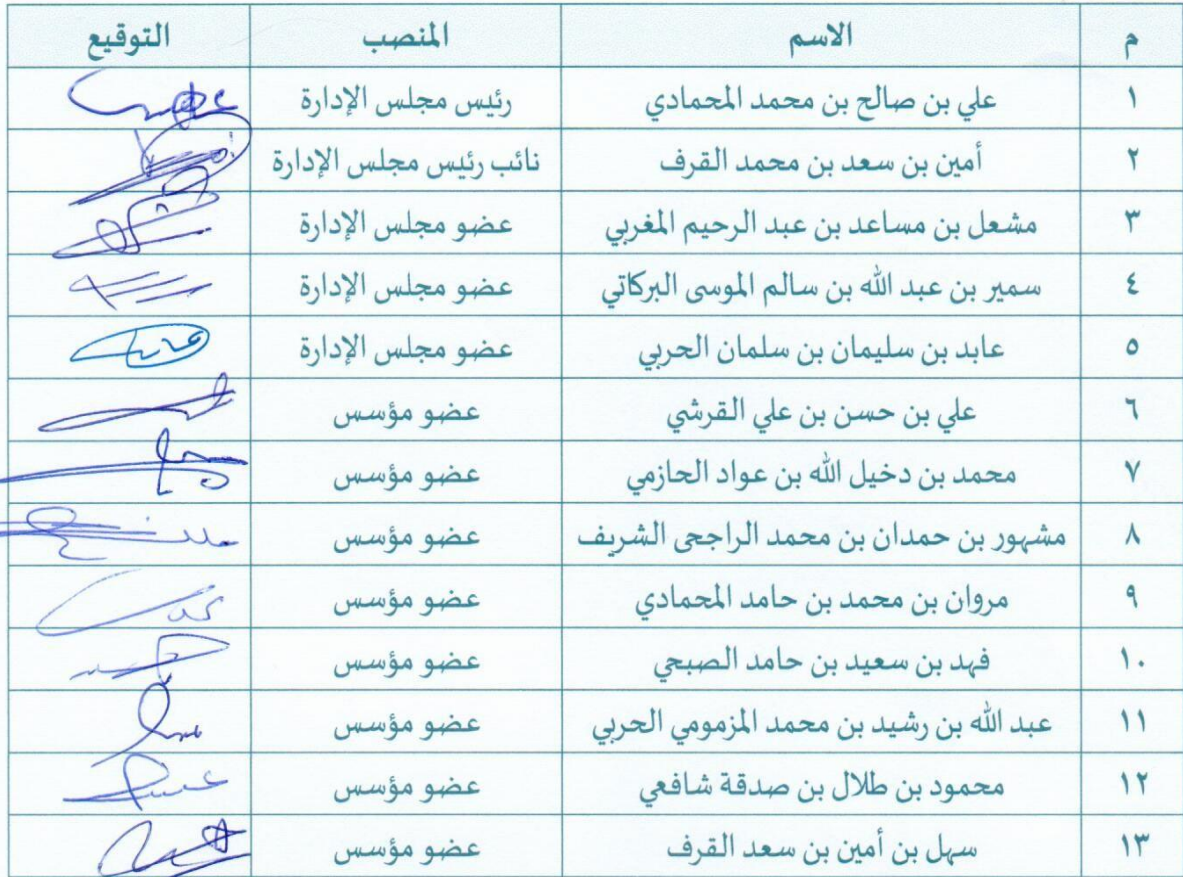 م الاسم المنصب التوقيع
١ علي بن صالح بن محمد المحمادي رئيس مجلس الإدارة
٢ أمين بن سعد بن محمد القرف نائب رئيس مجلس الإدارة
٣ مشعل بن مساعد بن عبد الرحيم المغربي عضو مجلس الإدارة
٤ سمير بن عبد الله بن سالم الموسى البركاتي عضو مجلس الإدارة
٥ عابد بن سليمان بن سلمان الحربي عضو مجلس الإدارة
٦ علي بن حسن بن علي القرشي عضو مؤسس
٧ محمد بن دخيل الله بن عواد الحازمي عضو مؤسس
٨ مشهور بن حمدان بن محمد الراجحى الشريف عضو مؤسس
٩ مروان بن محمد بن حامد المحمادي عضو مؤسس
١٠ فهد بن سعيد بن حامد الصبحي عضو مؤسس
١١ عبد الله بن رشيد بن محمد المزمومي الحربي عضو مؤسس
١٢ محمود بن طلال بن صدقة شافعي عضو مؤسس
١٣ سهل بن أمين بن سعد القرف عضو مؤسس